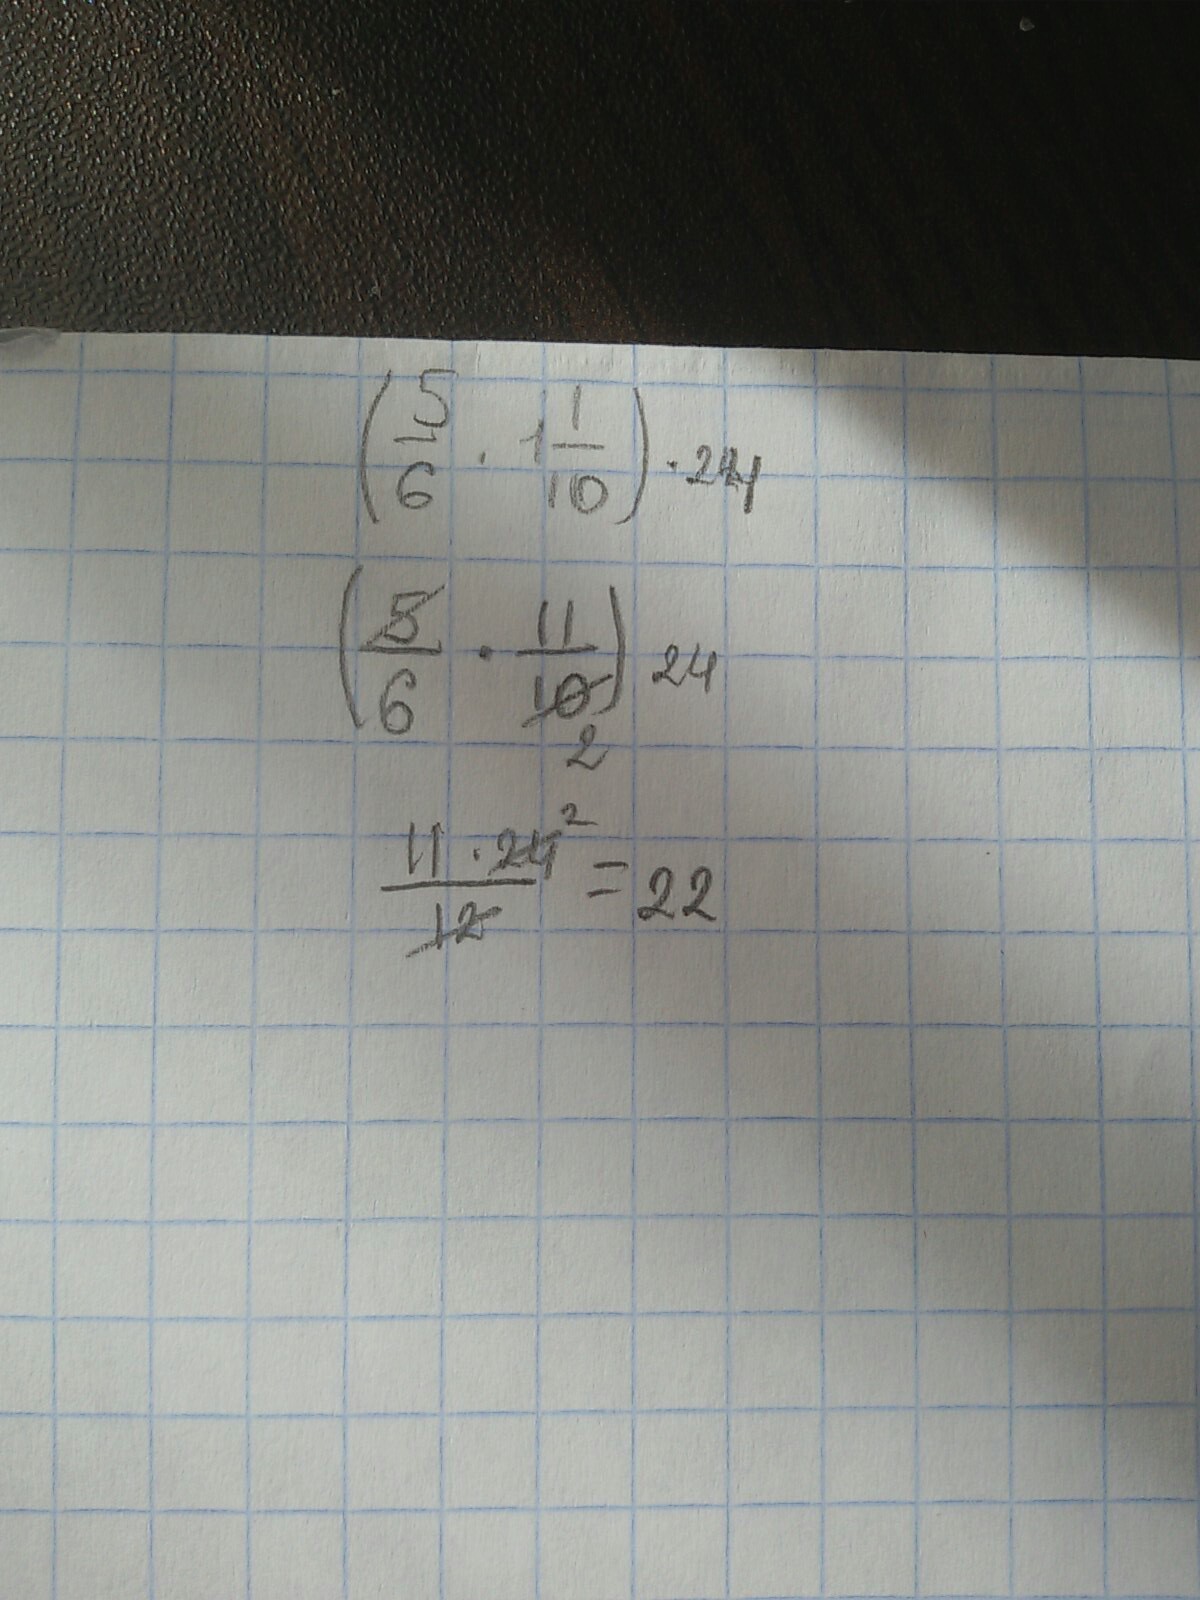 (5/6 · 1 1/10) · 24
(5/6 · 11/10) 24
2
11 · 24² / 12 = 22